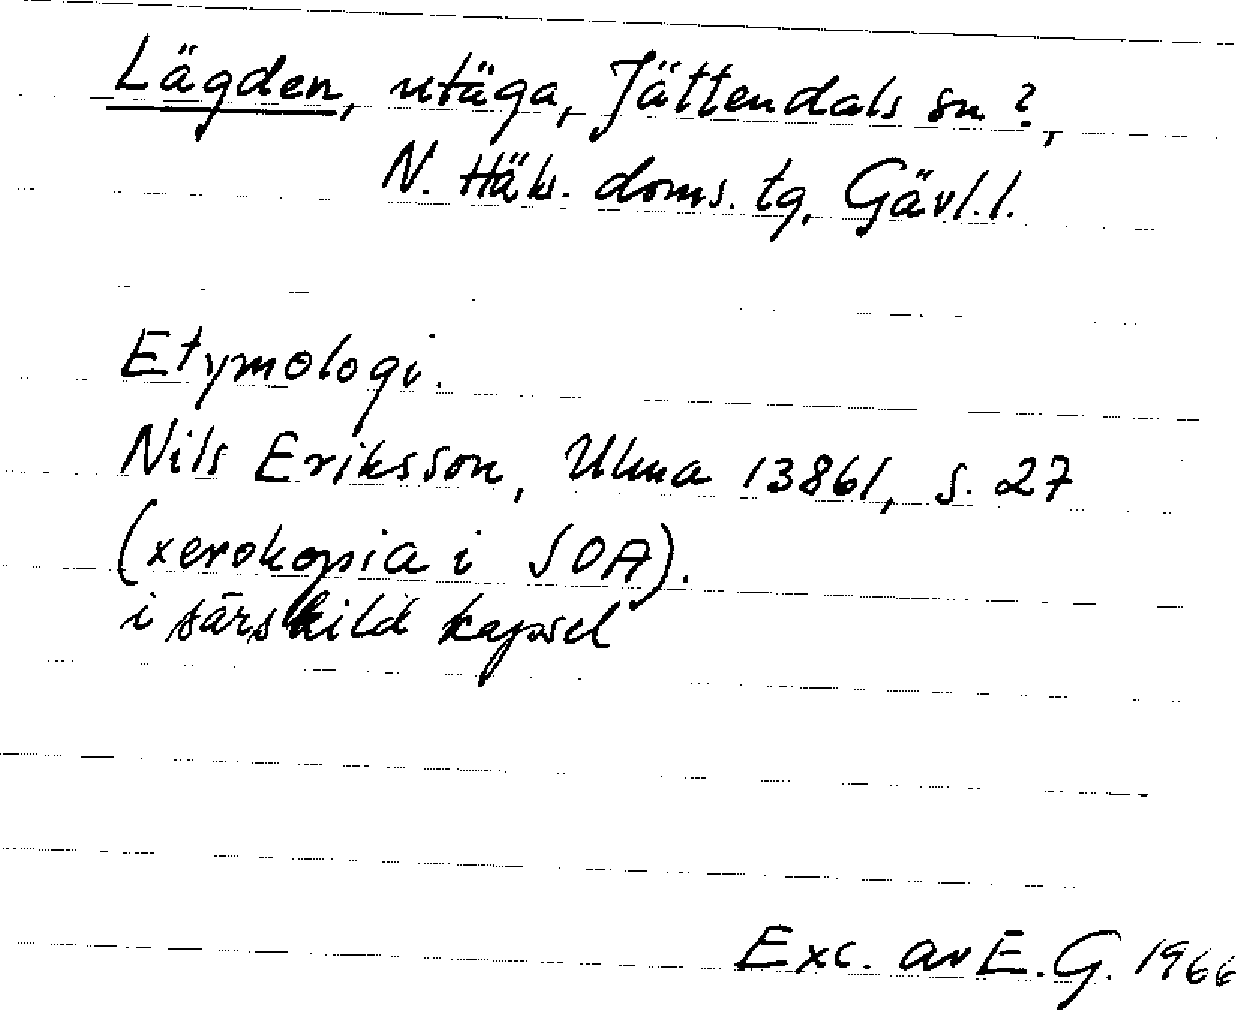 Lägden, utäga, Jättendals sn?,
N. Häls. doms. tg, Gävl. l.
Etymologi.
Nils Eriksson, Ulma 13861, s. 27
(xerokopia i SOA).
i särskild kapsel
Exc. av E. G. 1966